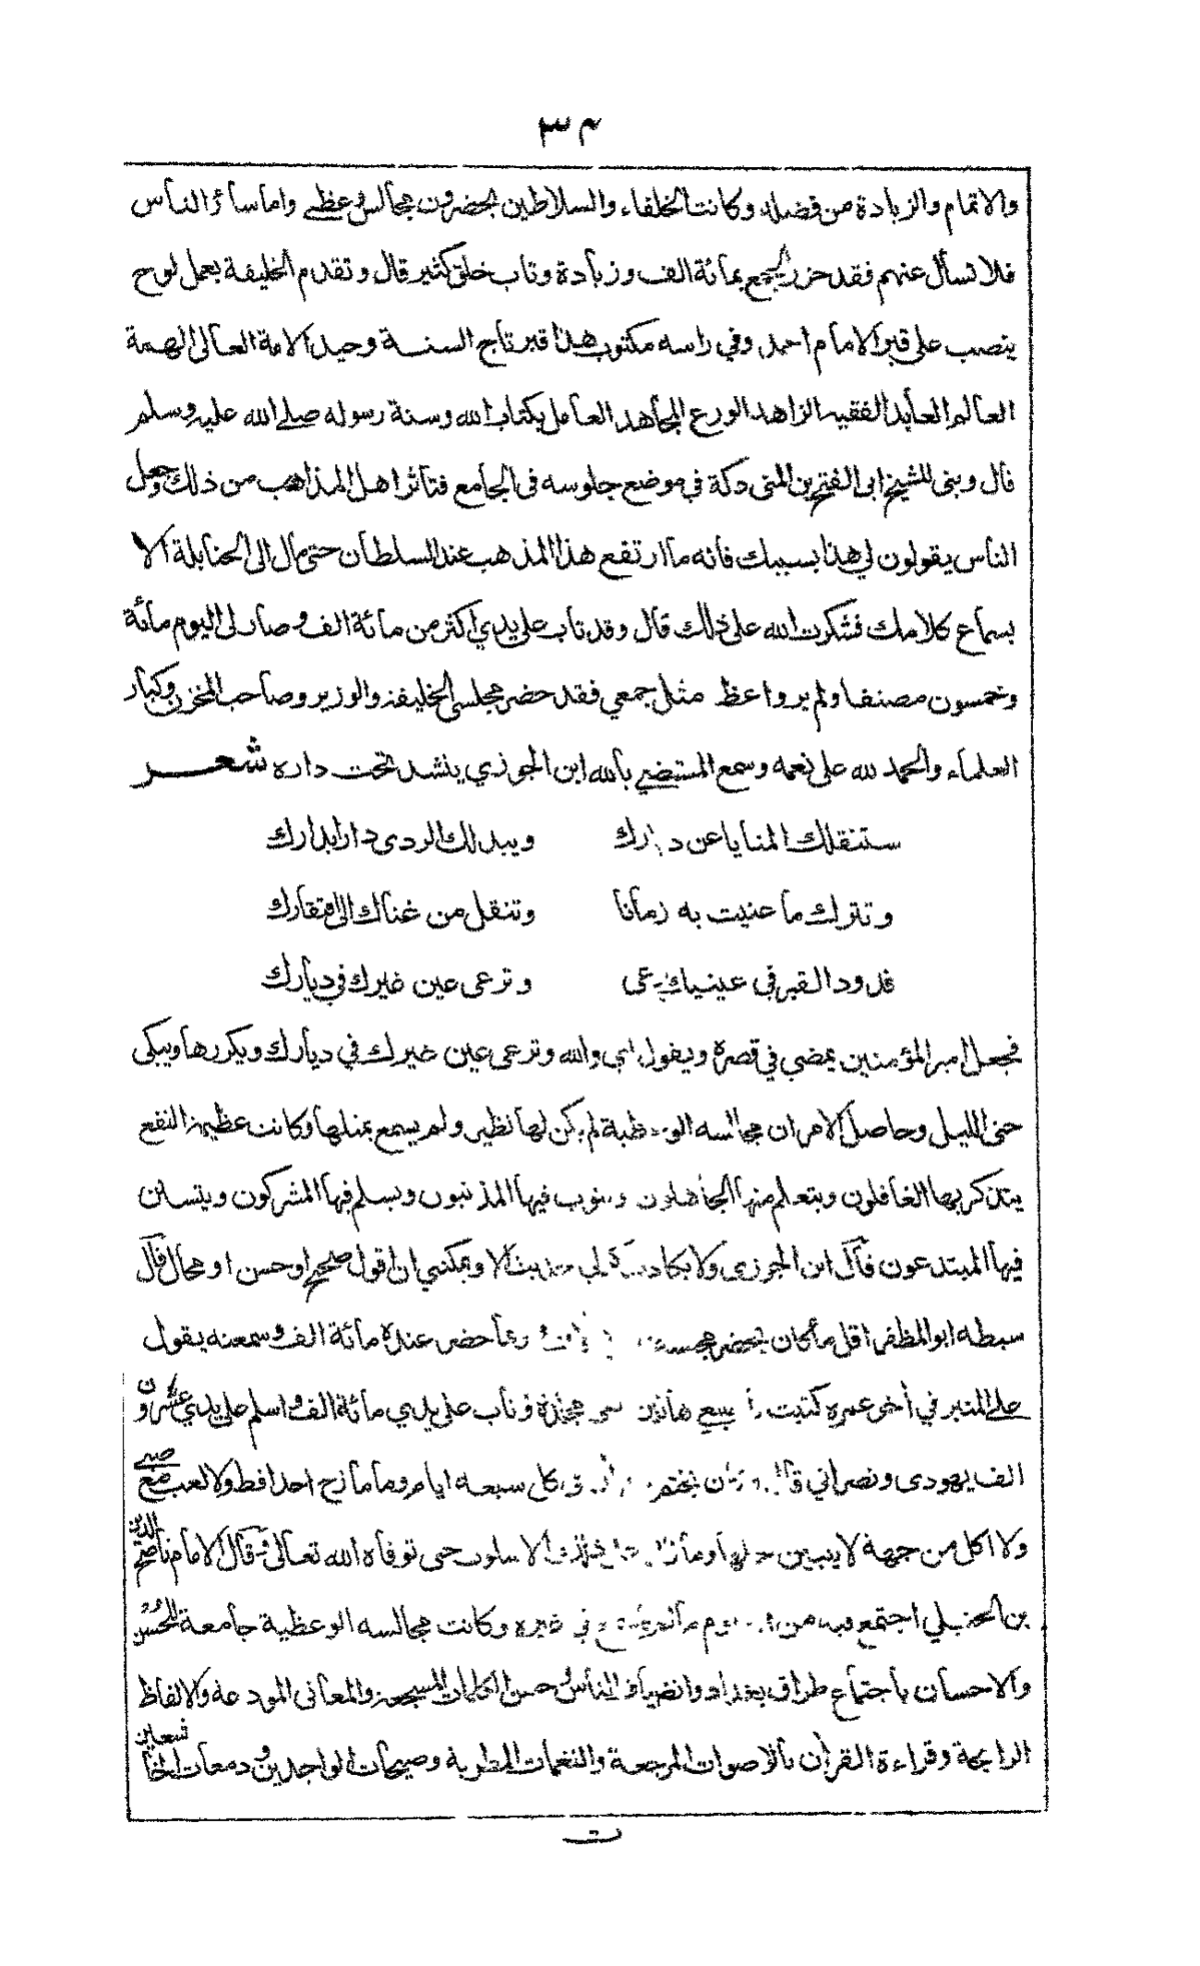 ٣٤
والاتمام والزيادة من فضله وكانت الخلفاء والسلاطين يحضرون مجالس وعظي واما سائر الناس
فلا تسأل عنهم فقد حزر الجمع بمائة الف وزيادة وتاب خلق كثير قال وتقدم الخليفة بعمل لوح
ينصب على قبر الامام احمد وفي راسه مكتوب هذا قبر تاج السنة وحيد الامة العالى الهمة
العالم العابد الفقيه الزاهد الورع المجاهد العامل بكتاب الله وسنة رسوله صلى الله عليه وسلم
قال وبنى للشيخ ابى الفتح بن المنى دكة في موضع جلوسه فى الجامع فتاثر اهل المذاهب من ذلك وجعل
الناس يقولون لي هذا بسببك فانه ما ارتفع هذا المذهب عند السلطان حتى مال الى الحنابلة الا
بسماع كلامك فشكرت الله على ذلك قال وقد تاب على يدي اكثر من مائة الف وصار لى اليوم مائة
وخمسون مصنفا ولم ير واعظ مثل جمعي فقد حضر مجلسى الخليفة والوزير وصاحب المخزن وكبار
العلماء والحمد لله على نعمه وسمع المستضيء بالله ابن الجوزي ينشد تحت داره شعر
ستنقلك المنايا عن ديارك ويبدلك الردى دارا بدارك
وتترك ما عنيت به زمانا وتنقل من غناك الى افتقارك
فدود القبر في عينيك يرعى وترعى عين غيرك في ديارك
فجعل امير المؤمنين يمضي في قصره ويقول اي والله وترعى عين غيرك في ديارك ويكررها ويبكى
حتى الليل وحاصل الامر ان مجالسه الوعظية لم يكن لها نظير ولم يسمع بمثلها وكانت عظيمة النفع
يتذكر بها الغافلون ويتعلم منها الجاهلون ويتوب فيها المذنبون ويسلم فيها المشركون ويتسنن
فيها المبتدعون قال ابن الجوزى ولا يكاد لي حديث الا ويمكنني ان اقول صحيح او حسن او محال قال
سبطه ابو المظفر اقل ما كان يحضر مجلسه ربما حضر عنده مائة الف وسمعته يقول
على المنبر في آخر عمره كتبت باصبعي هاتين مجلدة وتاب على يدي مائة الف واسلم على يدي عشرون
الف يهودى ونصراني قال وكان يختم كل سبعة ايام وما مازح احدا قط ولا لعب مع صبي
ولا اكل من جهة لا يتبين حلها وما زال على ذلك الاسلوب حتى توفاه الله تعالى وقال الامام ناصح الدين
بن الحنبلي اجتمع فيه من العلوم ما لم يجتمع في غيره وكانت مجالسه الوعظية جامعة للحسن
والاحسان باجتماع ظراف بغداد وانضياف الناس وحسن الكلمات المسجعة والمعانى المودعة والالفاظ
الرائجة وقراءة القرآن بالاصوات المرجعة والنغمات المطربة وصيحات الواجدين ودمعات الخاشعين
ت